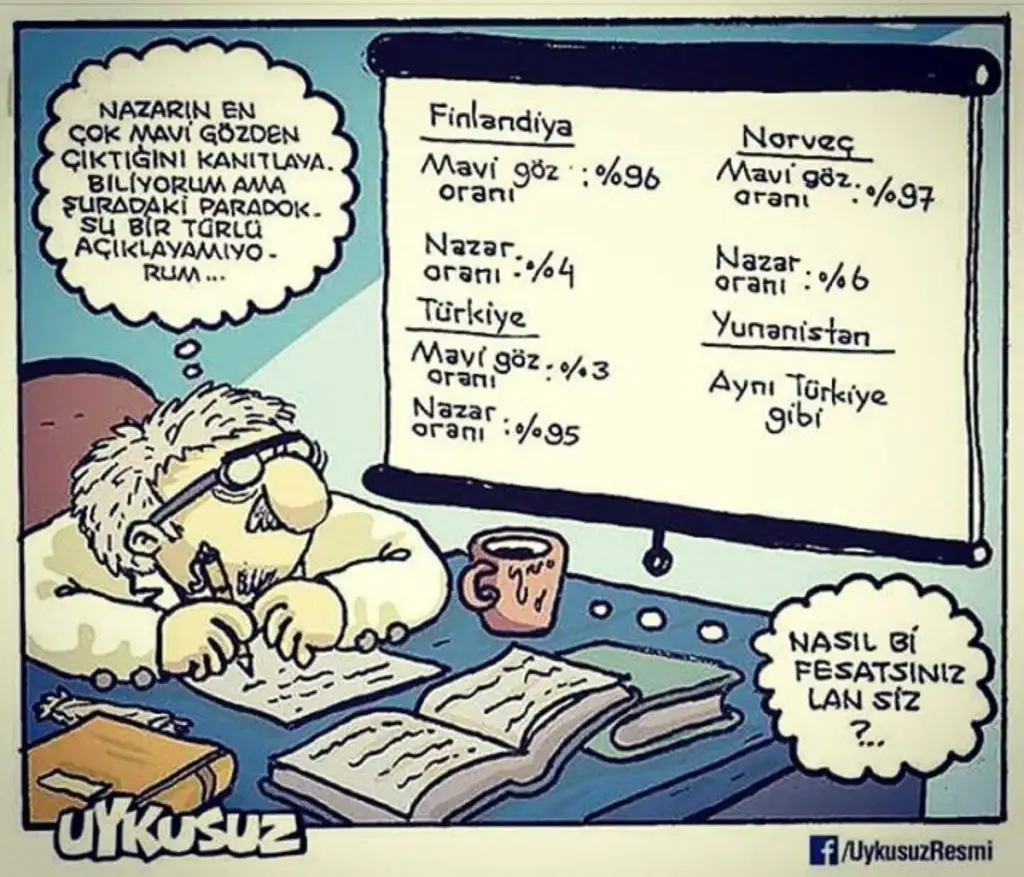 NAZARIN EN
ÇOK MAVİ GÖZDEN
ÇIKTIĞINI KANITLAYA.
BİLİYORUM AMA
ŞURADAKİ PARADOK.
SU BİR TÜRLÜ
AÇIKLAYAMIYO-
RUM...
Finlandiya
Mavi göz : %96
oranı
Nazar : %4
oranı
Türkiye
Mavi göz : %3
oranı
Nazar : %95
oranı
Norveç
Mavi göz : %97
oranı
Nazar : %6
oranı
Yunanistan
Aynı Türkiye
gibi
NASIL Bİ
FESATSINIZ
LAN SİZ
?...
UYKUSUZ
f/UykusuzResmi